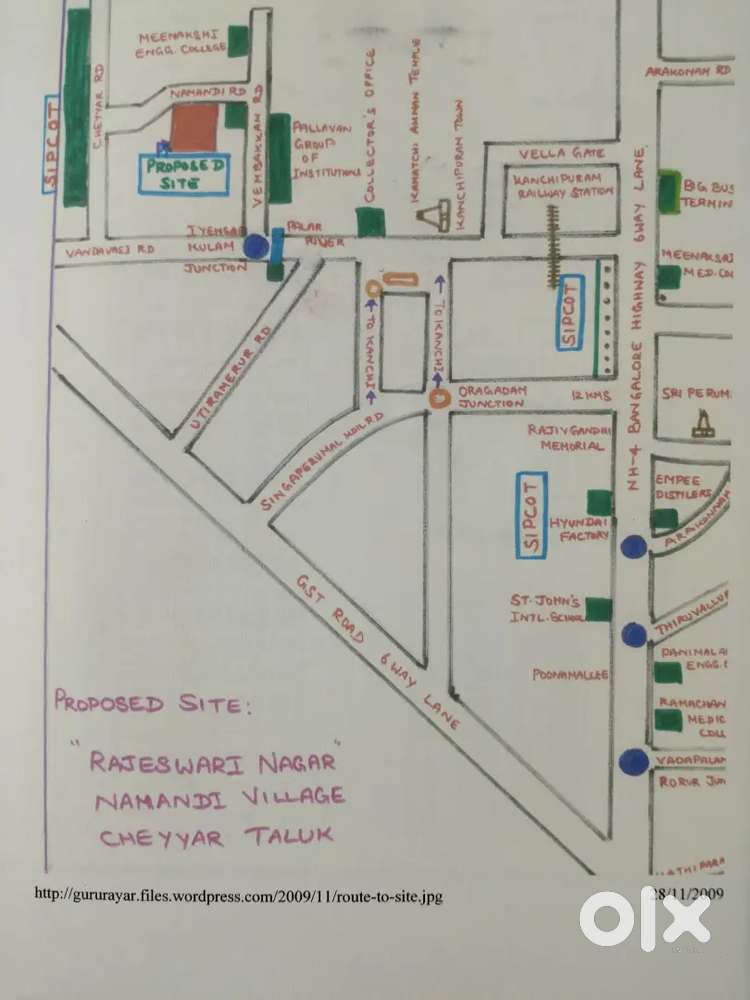 MEENAKSHI
ENGG. COLLEGE
SIPCOT
CHEYYAR RD
NAMANDI RD
VEMBAKKAN RD
PROPOSED
SITE
PALLAVAN
GROUP
OF
INSTITUTIONS
COLLECTOR'S OFFICE
KAMATCHI AMMAN TEMPLE
KANCHIPURAN TOWN
VELLA GATE
KANCHIPURAM
RAILWAY STATION
ARAKONAM RD
BIG BUS
TERMIN
MEENAKSHI
MED. COL
NH-4 BANGALORE HIGHWAY 6WAY LANE
VANDAVASI RD
IYENGAR
KULAM
JUNCTION
PALAR
RIVER
UTIRAMERUR RD
TO KANCHI
TO KANCHI
SIPCOT
ORAGADAM
JUNCTION
12 KMS
SINGAPERUMAL KOIL RD
SRI PERUM
RAJIVGANDHI
MEMORIAL
SIPCOT
HYUNDAI
FACTORY
EMPEE
DISTILERS
ARAKONNAM
ST. JOHN'S
INTL. SCHOOL
THIRUVALLUR
POONAMALLEE
PANIMALAI
ENGG.
RAMACHAN
MEDIC
COLL
VADAPALAN
RORUR JUN
LATHIPARA
GST ROAD 6WAY LANE
PROPOSED SITE:
"RAJESWARI NAGAR"
NAMANDI VILLAGE
CHEYYAR TALUK
http://gururayar.files.wordpress.com/2009/11/route-to-site.jpg
28/11/2009
olx